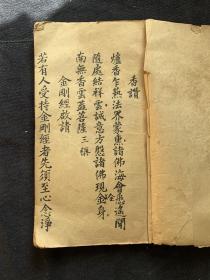 香讚
爐香乍爇法界蒙熏諸佛海會悉遙聞
隨處結祥雲誠意方慇諸佛現金身
南無香雲蓋菩薩三稱
金剛經啟請
若有人受持金剛經者先須至心念淨